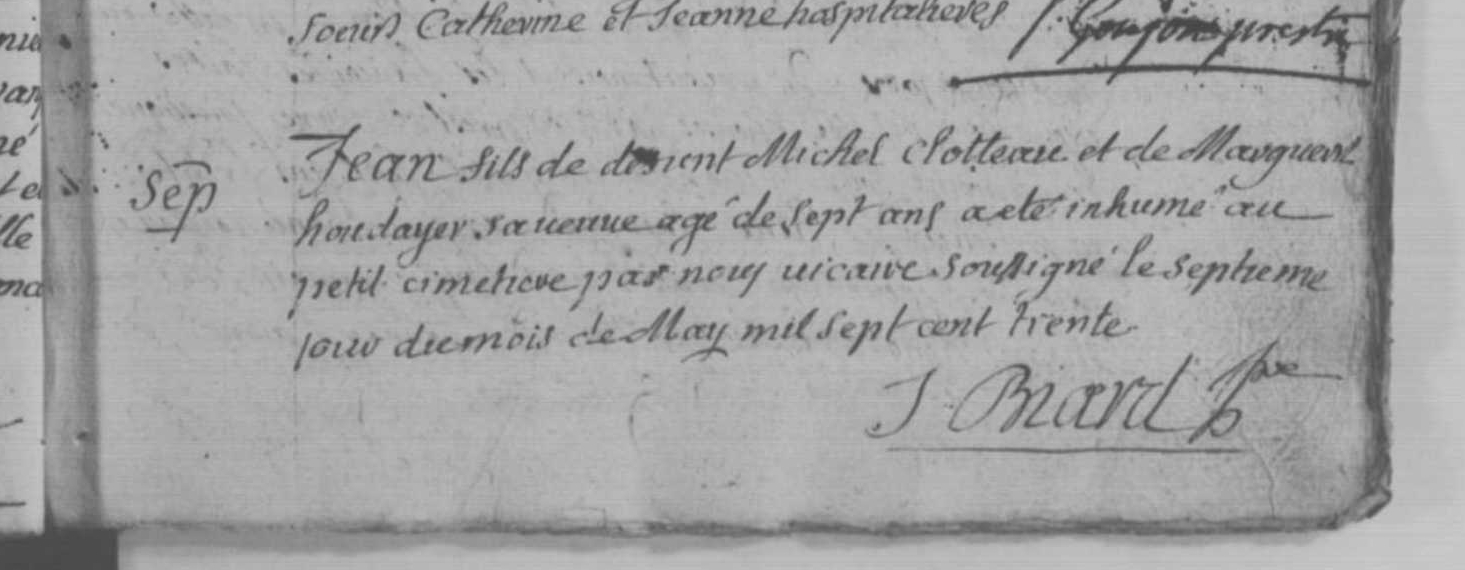 soeurs Catherine et Jeanne hospitalieres
Sep
Jean fils de Michel Clotteau et de Marguerit
houdayer sa ueuue agé de sept ans a eté inhumé au
petit cimetiere par nous uicaire soussigné le septieme
jour du mois de May mil sept cent trente.
J Biard pbre